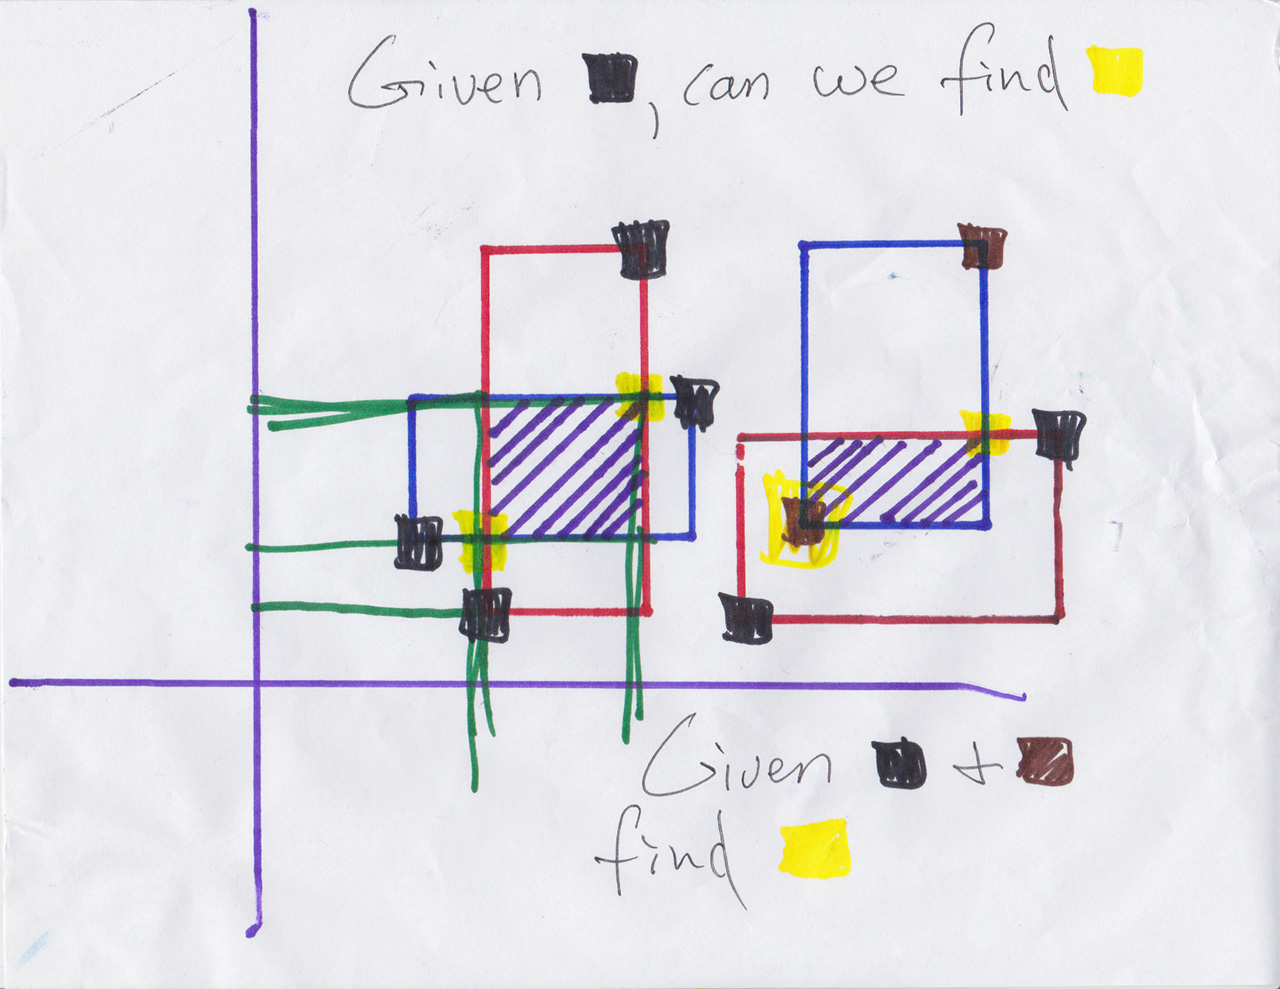 Given , can we find
Given +
find